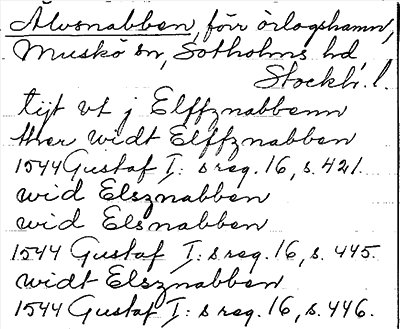 Älvsnabben, förr örlogshamn,
Muskö sn, Sotholms hd,
Stockh. l.
tijt vt j Elffznabbenn
ther widt Elffznabben
1544 Gustaf I: s reg. 16, s. 421.
wid Elsznabben
wid Elsnabben
1544 Gustaf I: s reg. 16, s. 445.
widt Elsznabben
1544 Gustaf I: s reg. 16, s. 446.